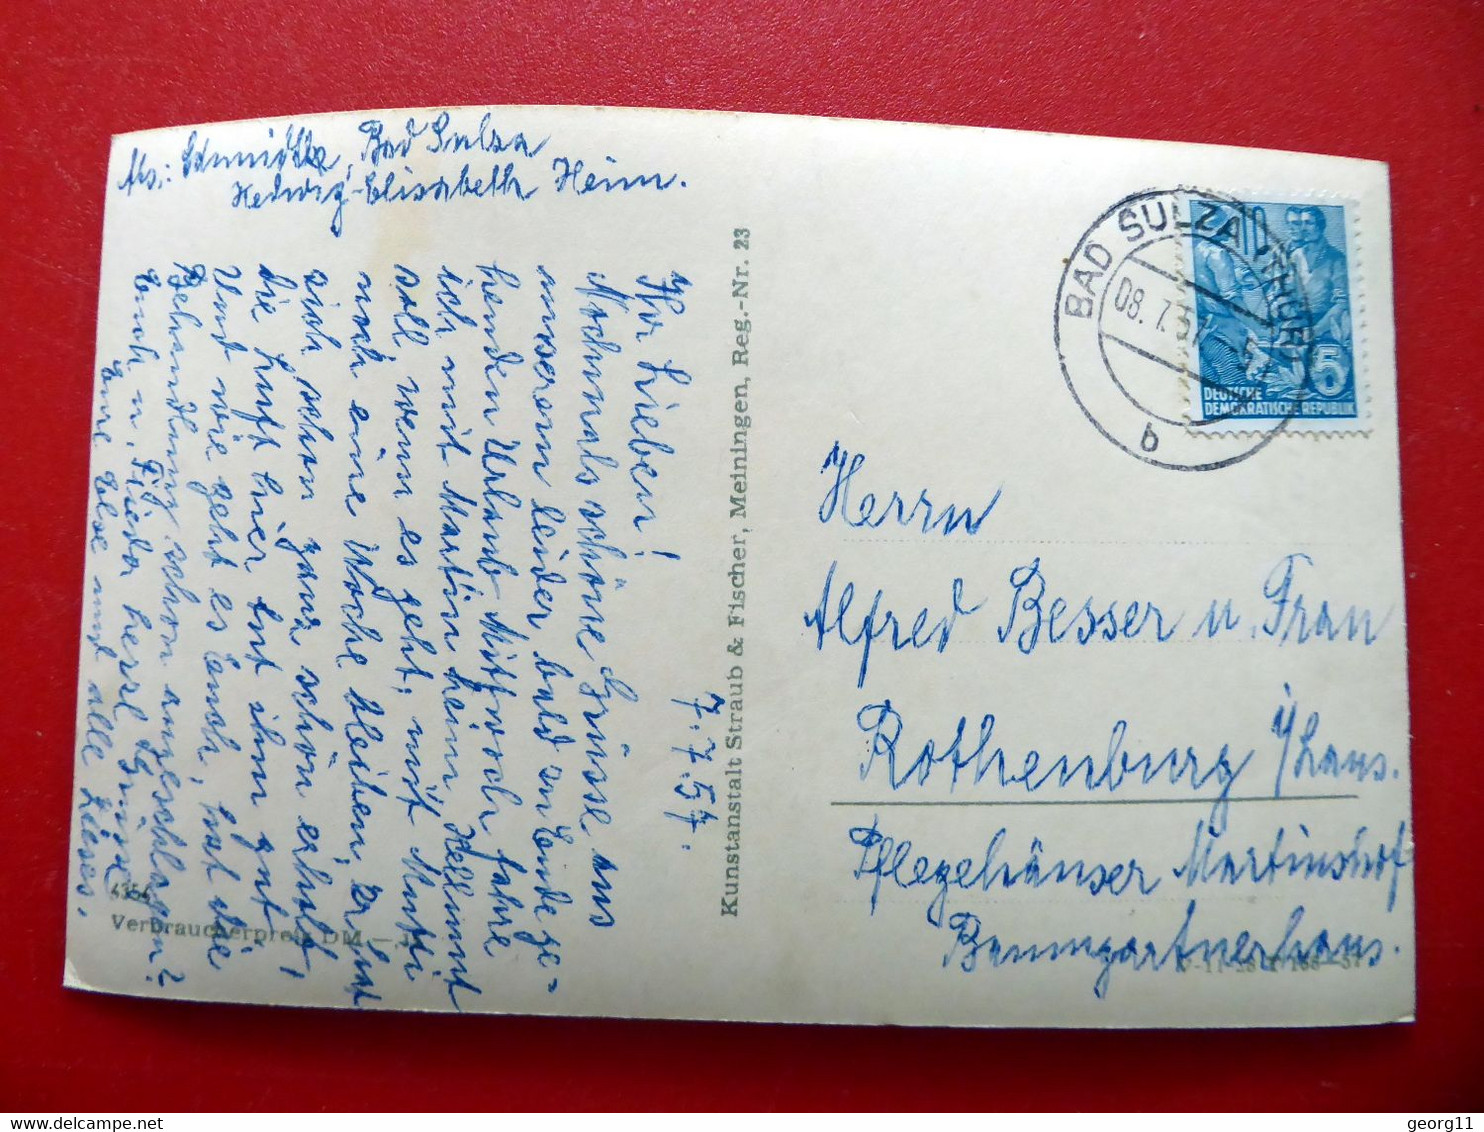 Abs.: Schmidtke, Bad Sulza
Hedwig-Elisabeth Heim.
7.7.57.
Ihr Lieben!
Nochmals schöne Grüsse aus
unserem leider bald zu Ende ge=
henden Urlaub. Mittwoch fahre
ich mit Martin heim, Hellmut
soll, wenn es geht, mit Mutti
noch eine Woche bleiben, er hat
sich schon ganz schön erholt,
die Luft hier tut ihm gut,
Und wie geht es Euch, hat die
Behandlung schon angeschlagen?
Euch u. Frieda herzl. Grüsse
Eure Else und alle Lieses.
4354
Verbraucherpreis DM —
Kunstanstalt Straub & Fischer, Meiningen, Reg.-Nr. 23
BAD SULZA (THÜR)
08.7.57
b
10
5
DEUTSCHE
DEMOKRATISCHE REPUBLIK
Herrn
Alfred Besser u. Frau
Rothenburg i/Laus.
Pflegehäuser Martinshof
Baumgartnerhaus.
georg11